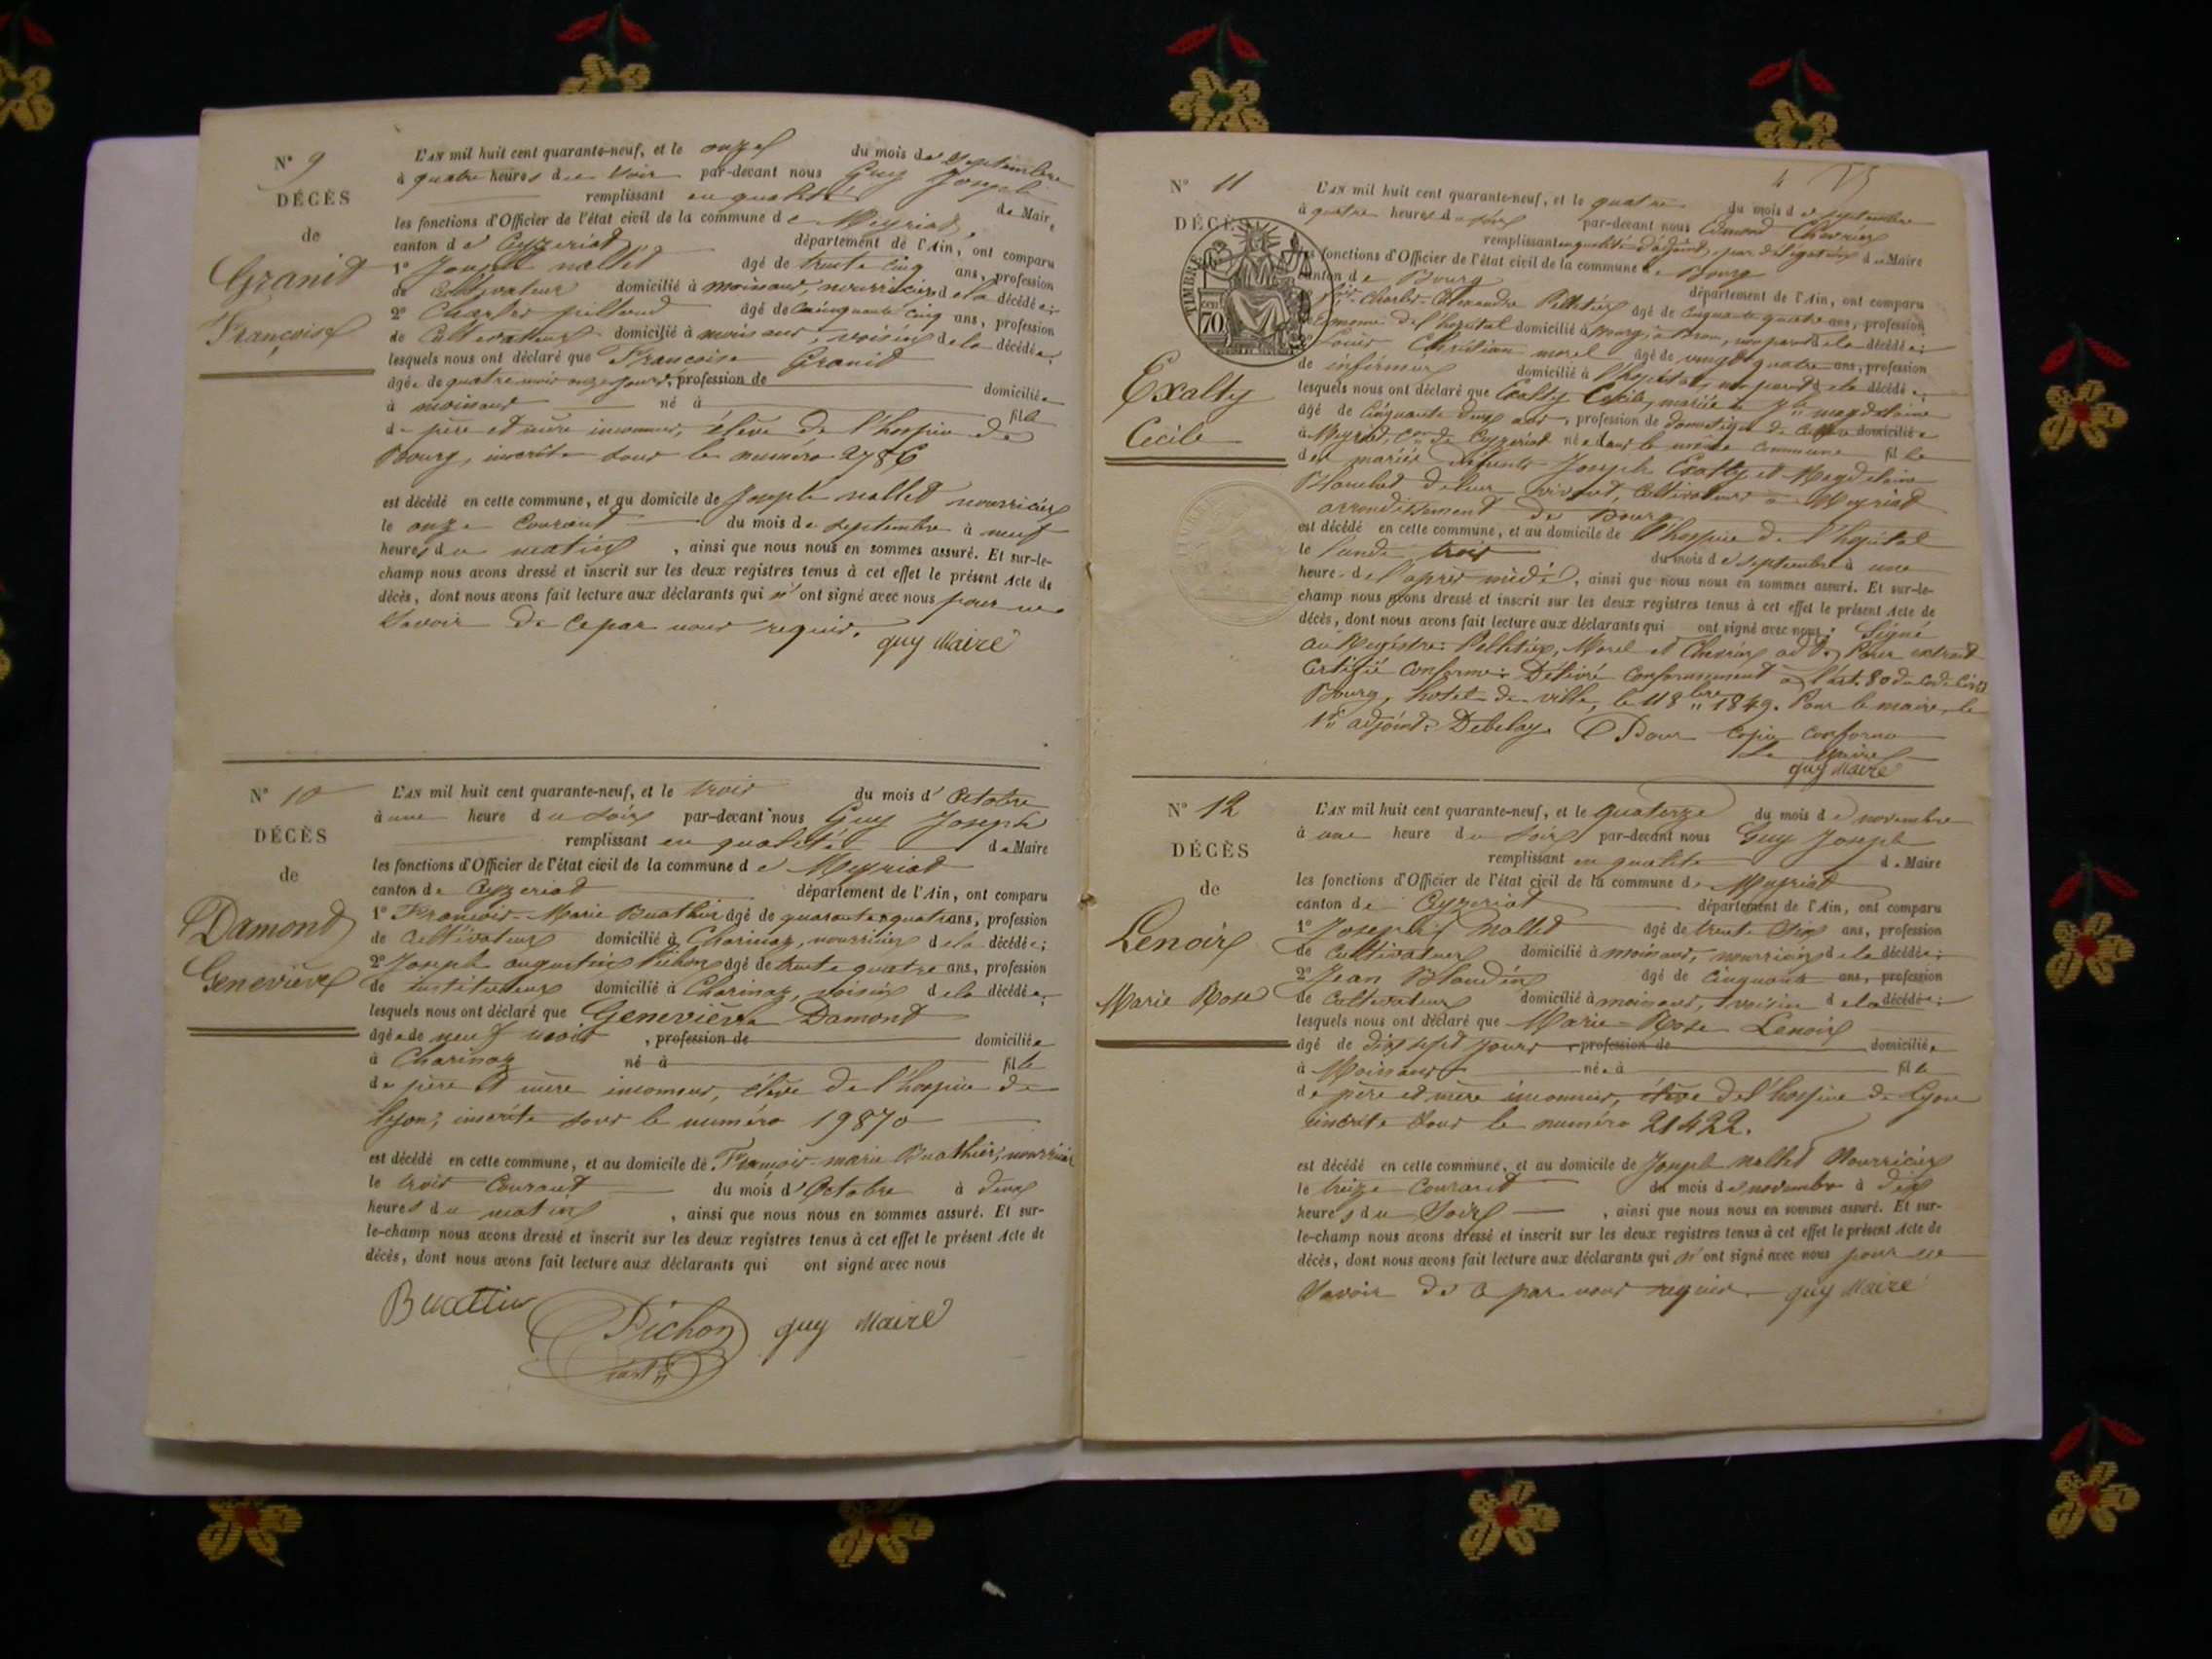 N° 9
DÉCÈS
de
Granit
Françoise
L'AN mil huit cent quarante-neuf, et le onze du mois de Septembre
à quatre heures du Soir par-devant nous Guy Joseph
remplissant en qualité de Maire
les fonctions d'Officier de l'état civil de la commune de Meyriat
canton de Ceyzeriat département de l'Ain, ont comparu
1° Joseph nallet âgé de trente cinq ans, profession
de Cultivateur domicilié à moinans, nourricier de la décédée;
2° Charles pilloud âgé de Cinquante Cinq ans, profession
de Cultivateur domicilié à moinans, voisin de la décédée;
lesquels nous ont déclaré que Francoise Granit
âgée de quatre mois onze jours, profession de domiciliée
à moinans né à fille
de père et mère inconnus, élève de l'hospice de
Bourg, inscrite sous le numéro 2786
est décédé en cette commune, et au domicile de Joseph nallet nourricier
le onze Courant du mois de septembre à neuf
heures du matin, ainsi que nous nous en sommes assuré. Et sur-le-
champ nous avons dressé et inscrit sur les deux registres tenus à cet effet le présent Acte de
décès, dont nous avons fait lecture aux déclarants qui n'ont signé avec nous pour ne
Savoir de ce par nous requis. guy Maire
N° 10
DÉCÈS
de
Damond
Geneviève
L'AN mil huit cent quarante-neuf, et le trois du mois d'Octobre
à une heure du soir par-devant nous Guy Joseph
remplissant en qualité de Maire
les fonctions d'Officier de l'état civil de la commune de Meyriat
canton de Ceyzeriat département de l'Ain, ont comparu
1° François-Marie Buathier âgé de quarante quatre ans, profession
de Cultivateur domicilié à Charinaz, nourricier de la décédée;
2° Joseph augustin Pichon âgé de trente quatre ans, profession
de instituteur domicilié à Charinaz, voisin de la décédée;
lesquels nous ont déclaré que Geneviève Damond
âgée de neuf mois, profession de domiciliée
à Charinaz né à fille
de père et mère inconnus, élève de l'hospice de
lyon, inscrite sous le numéro 19870
est décédé en cette commune, et au domicile de François-marie Buathier, nourricier
le trois Courant du mois d'Octobre à deux
heures du matin, ainsi que nous nous en sommes assuré. Et sur-
le-champ nous avons dressé et inscrit sur les deux registres tenus à cet effet le présent Acte de
décès, dont nous avons fait lecture aux déclarants qui ont signé avec nous
Buattier Pichon guy Maire
4
N° 11
DÉCÈS
TIMBRE
70
Exalty
Cécile
L'AN mil huit cent quarante-neuf, et le quatre du mois de septembre
à quatre heures du soir par-devant nous Edmond Chevrier
remplissant en qualité d'adjoint, par délégation de Maire
les fonctions d'Officier de l'état civil de la commune de Bourg
canton de Bourg département de l'Ain, ont comparu
Charles-Alexandre Pelletier âgé de Cinquante quatre ans, profession
Econome de l'hopital domicilié à Bourg, non parent de la décédée;
Louis Christian morel âgé de vingt quatre ans, profession
de infirmier domicilié à l'hopital, non parent de la décédée;
lesquels nous ont déclaré que Exalty Cécile, mariée
âgé de Cinquante deux ans, profession de domestique domiciliée
à Meyriat, Con de Ceyzeriat née dans la même Commune fille
des mariés défunts Joseph Exalty et Magdelaine
Blanchet de leur vivant, Cultivateurs à Meyriat
arrondissement de Bourg
est décédé en cette commune, et au domicile de l'hospice de l'hopital
le lundi trois du mois de septembre à une
heure de l'après midi, ainsi que nous nous en sommes assuré. Et sur-le-
champ nous avons dressé et inscrit sur les deux registres tenus à cet effet le présent Acte de
décès, dont nous avons fait lecture aux déclarants qui ont signé avec nous: Signé
au Registre: Pelletier, Morel et Chevrier adt. Pour extrait
Certifié Conforme: Délivré Conformément à l'art. 80 du Code Civil
Bourg, hotel de ville, le 11 8bre 1849. Pour le maire, le
1er adjoint: Debelay. Pour Copie Conforme
Le Maire
guy Maire
N° 12
DÉCÈS
de
Lenoir
Marie Rose
L'AN mil huit cent quarante-neuf, et le quatorze du mois de novembre
à une heure du soir par-devant nous Guy Joseph
remplissant en qualité de Maire
les fonctions d'Officier de l'état civil de la commune de Meyriat
canton de Ceyzeriat département de l'Ain, ont comparu
1° Joseph nallet âgé de trente Six ans, profession
de Cultivateur domicilié à moinans, nourricier de la décédée;
2° Jean Blandin âgé de Cinquante ans, profession
de Cultivateur domicilié à moinans, voisin de la décédée;
lesquels nous ont déclaré que Marie-Rose Lenoir
âgé de dix sept jours, profession de domiciliée
à Moinans née à fille
de père et mère inconnus, élève de l'hospice de Lyon
inscrite sous le numéro 21422.
est décédé en cette commune, et au domicile de Joseph nallet Nourricier
le treize Courant du mois de novembre à dix
heures du Soir, ainsi que nous nous en sommes assuré. Et sur-
le-champ nous avons dressé et inscrit sur les deux registres tenus à cet effet le présent Acte de
décès, dont nous avons fait lecture aux déclarants qui n'ont signé avec nous pour ne
Savoir de ce par nous requis. guy Maire